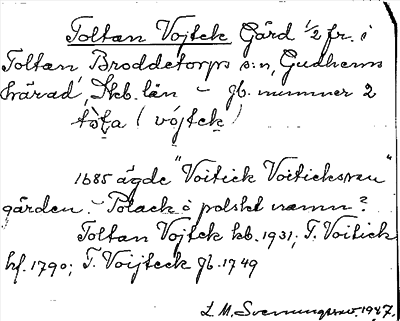 Toltan Vojtek Gård 1/2 fr. i
Toltan Broddetorps s:n, Gudhems
härad, Skb. län – jb. nummer 2
( vójtek )
1685 ägde "Voitick Voiticksson"
gården. – Polack o polskt namn?
Toltan Vojtek kb. 1931; T. Voitick
hf. 1790; T. Voijteck jb. 1749
L. M. Svenungsson. 1947.